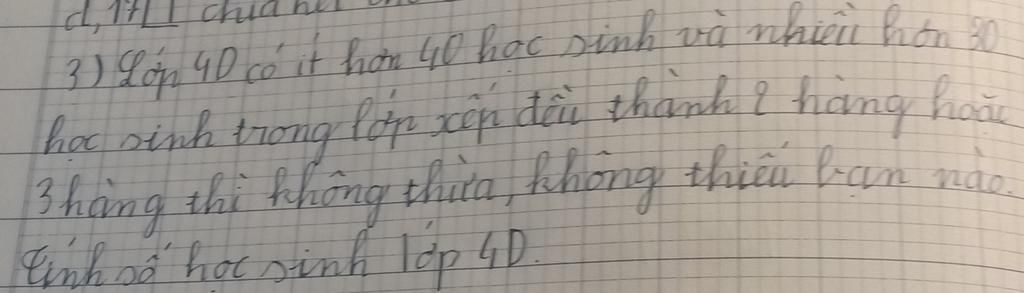 d, 17 chia hết
3) Lớp 4D có ít hơn 40 học sinh và nhiều hơn 30
học sinh trong lớp xếp đều thành 2 hàng hoặc
3 hàng thì không thừa, không thiếu bạn nào.
Tính số học sinh lớp 4D.